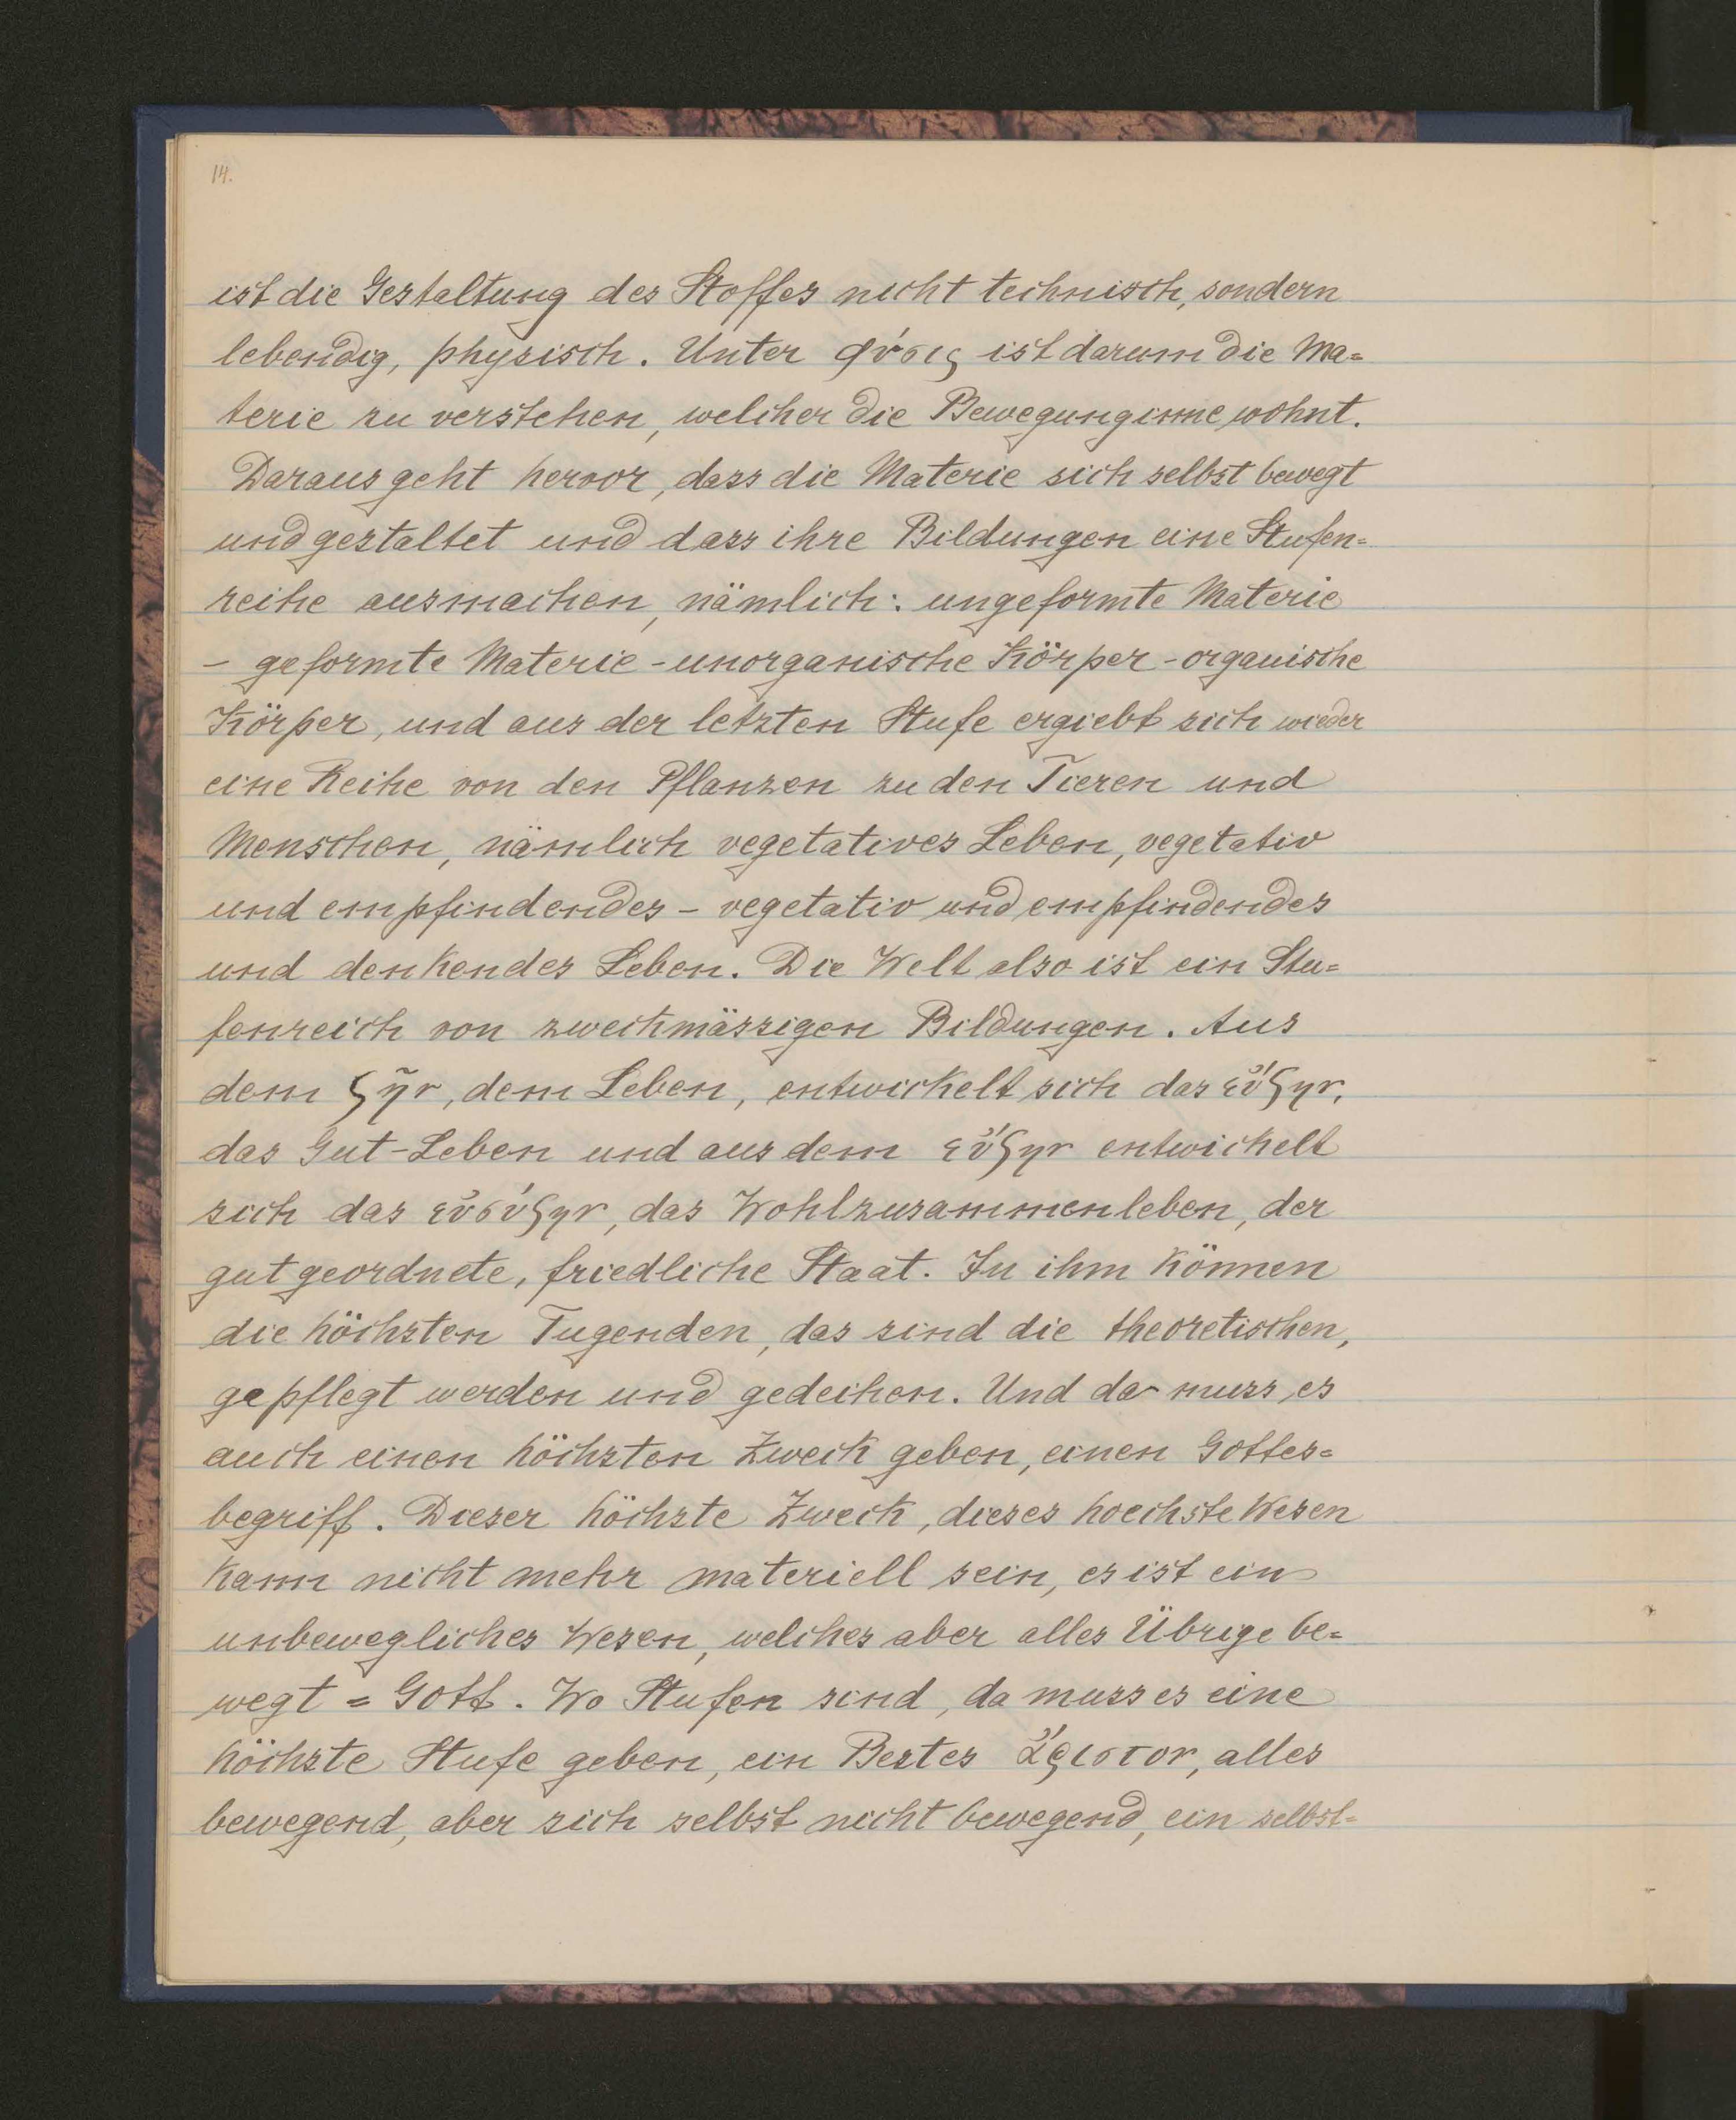 14.
ist die Gestaltung des Stoffes nicht technisch, sondern
lebendig, physisch. Unter φύσις ist darum die Ma=
terie zu verstehen, welcher die Bewegung inne wohnt.
Daraus geht hervor, dass die Materie sich selbst bewegt
und gestaltet und dass ihre Bildungen eine Stufen=
reihe ausmachen, nämlich: ungeformte Materie
– geformte Materie - unorganische Körper - organische
Körper, und aus der letzten Stufe ergiebt sich wieder
eine Reihe von den Pflanzen zu den Tieren und
Menschen, nämlich vegetatives Leben, vegetativ
und empfindendes – vegetativ und empfindendes
und denkendes Leben. Die Welt also ist ein Stu=
fenreich von zweckmässigen Bildungen. Aus
dem ζῆν, dem Leben, entwickelt sich das εὖζην,
das Gut-Leben und aus dem εὖζην entwickelt
sich das εὐσύζην, das Wohlzusammenleben, der
gut geordnete, friedliche Staat. In ihm können
die höchsten Tugenden, das sind die theoretischen,
gepflegt werden und gedeihen. Und da muss es
auch einen höchsten Zweck geben, einen Gottes=
begriff. Dieser höchste Zweck, dieses hoechste Wesen
kann nicht mehr materiell sein, es ist ein
unbewegliches Wesen, welches aber alles Übrige be=
wegt = Gott. Wo Stufen sind, da muss es eine
höchste Stufe geben, ein Bestes ἄριστον, alles
bewegend, aber sich selbst nicht bewegend, ein selbst=